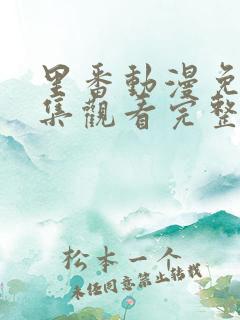 里番動漫免
集觀看完整
松本一个
未经同意禁止转载